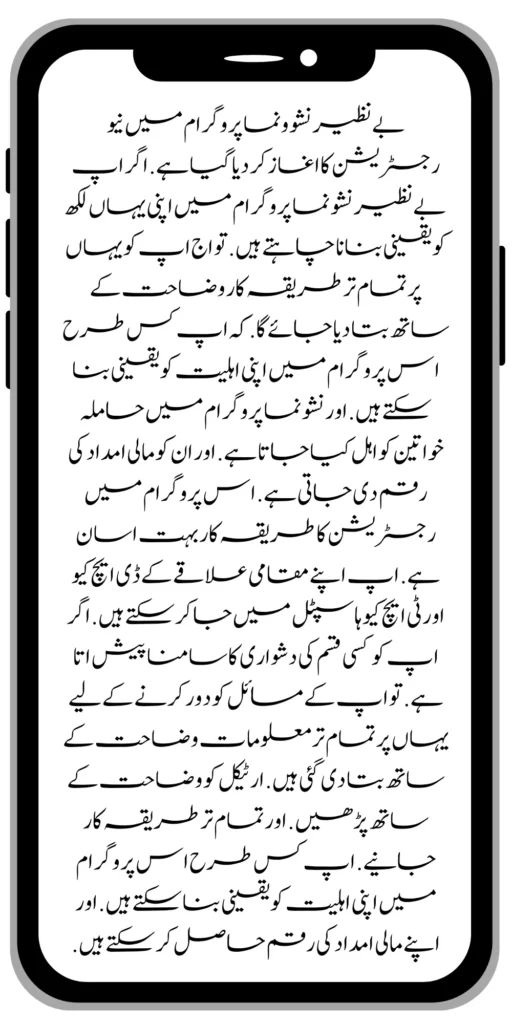 بے نظیر نشوونما پروگرام میں نیو
رجسٹریشن کا اغاز کر دیا گیا ہے. اگر اپ
بے نظیر نشو نما پروگرام میں اپنی یہاں لکھ
کو یقینی بنانا چاہتے ہیں. تو اج اپ کو یہاں
پر تمام تر طریقہ کار وضاحت کے
ساتھ بتا دیا جائے گا. کہ اپ کس طرح
اس پروگرام میں اپنی اہلیت کو یقینی بنا
سکتے ہیں. اور نشو نما پروگرام میں حاملہ
خواتین کو اہل کیا جاتا ہے. اور ان کو مالی امداد کی
رقم دی جاتی ہے. اس پروگرام میں
رجسٹریشن کا طریقہ کار بہت اسان
ہے. اپ اپنے مقامی علاقے کے ڈی ایچ کیو
اور ٹی ایچ کیو ہاسپٹل میں جا کر سکتے ہیں. اگر
اپ کو کسی قسم کی دشواری کا سامنا پیش اتا
ہے. تو اپ کے مسائل کو دور کرنے کے لیے
یہاں پر تمام تر معلومات وضاحت کے
ساتھ بتا دی گئی ہیں. ارٹیکل کو وضاحت کے
ساتھ پڑھیں. اور تمام تر طریقہ کار
جانیے. اپ کس طرح اس پروگرام
میں اپنی اہلیت کو یقینی بنا سکتے ہیں. اور
اپنے مالی امداد کی رقم حاصل کر سکتے ہیں.